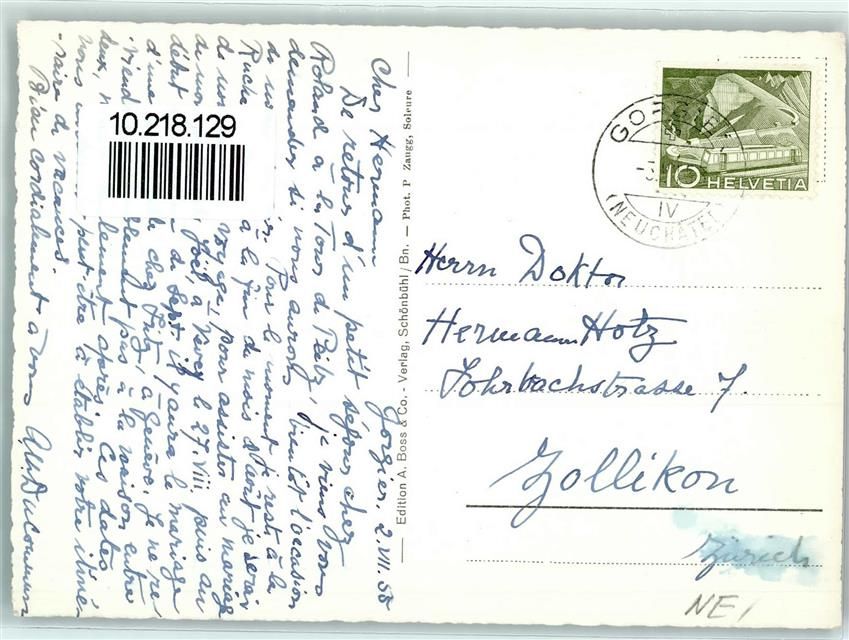 Gorgier, 2.VII.58
Cher Hermann
De retour d'un petit séjour chez
Roland à la Tour de Peilz, je viens vous
demander si nous aurons bientôt l'occasion
de vous Pour le moment je reste à la
Ruche à la fin du mois d'août je serai
de voyage, pour assister au mariage
de mon Joël, à Vevey le 27.VIII. puis au
début de Sept. il y aura le mariage
d'une chez à Genève. Je ne re-
viend pas à la maison entre
deux, lement après. Ces dates
vous peut-être à établir votre itiné-
raire de vacances.
Bien cordialement à vous
10.218.129
Edition A. Boss & Co. - Verlag, Schönbühl/Bn. — Phot. P. Zaugg, Soleure
GORGIER
IV
(NEUCHÂTEL)
10 HELVETIA
Herrn Doktor
Hermann Hotz
Fohrbachstrasse 7.
Zollikon
Zürich
NE/